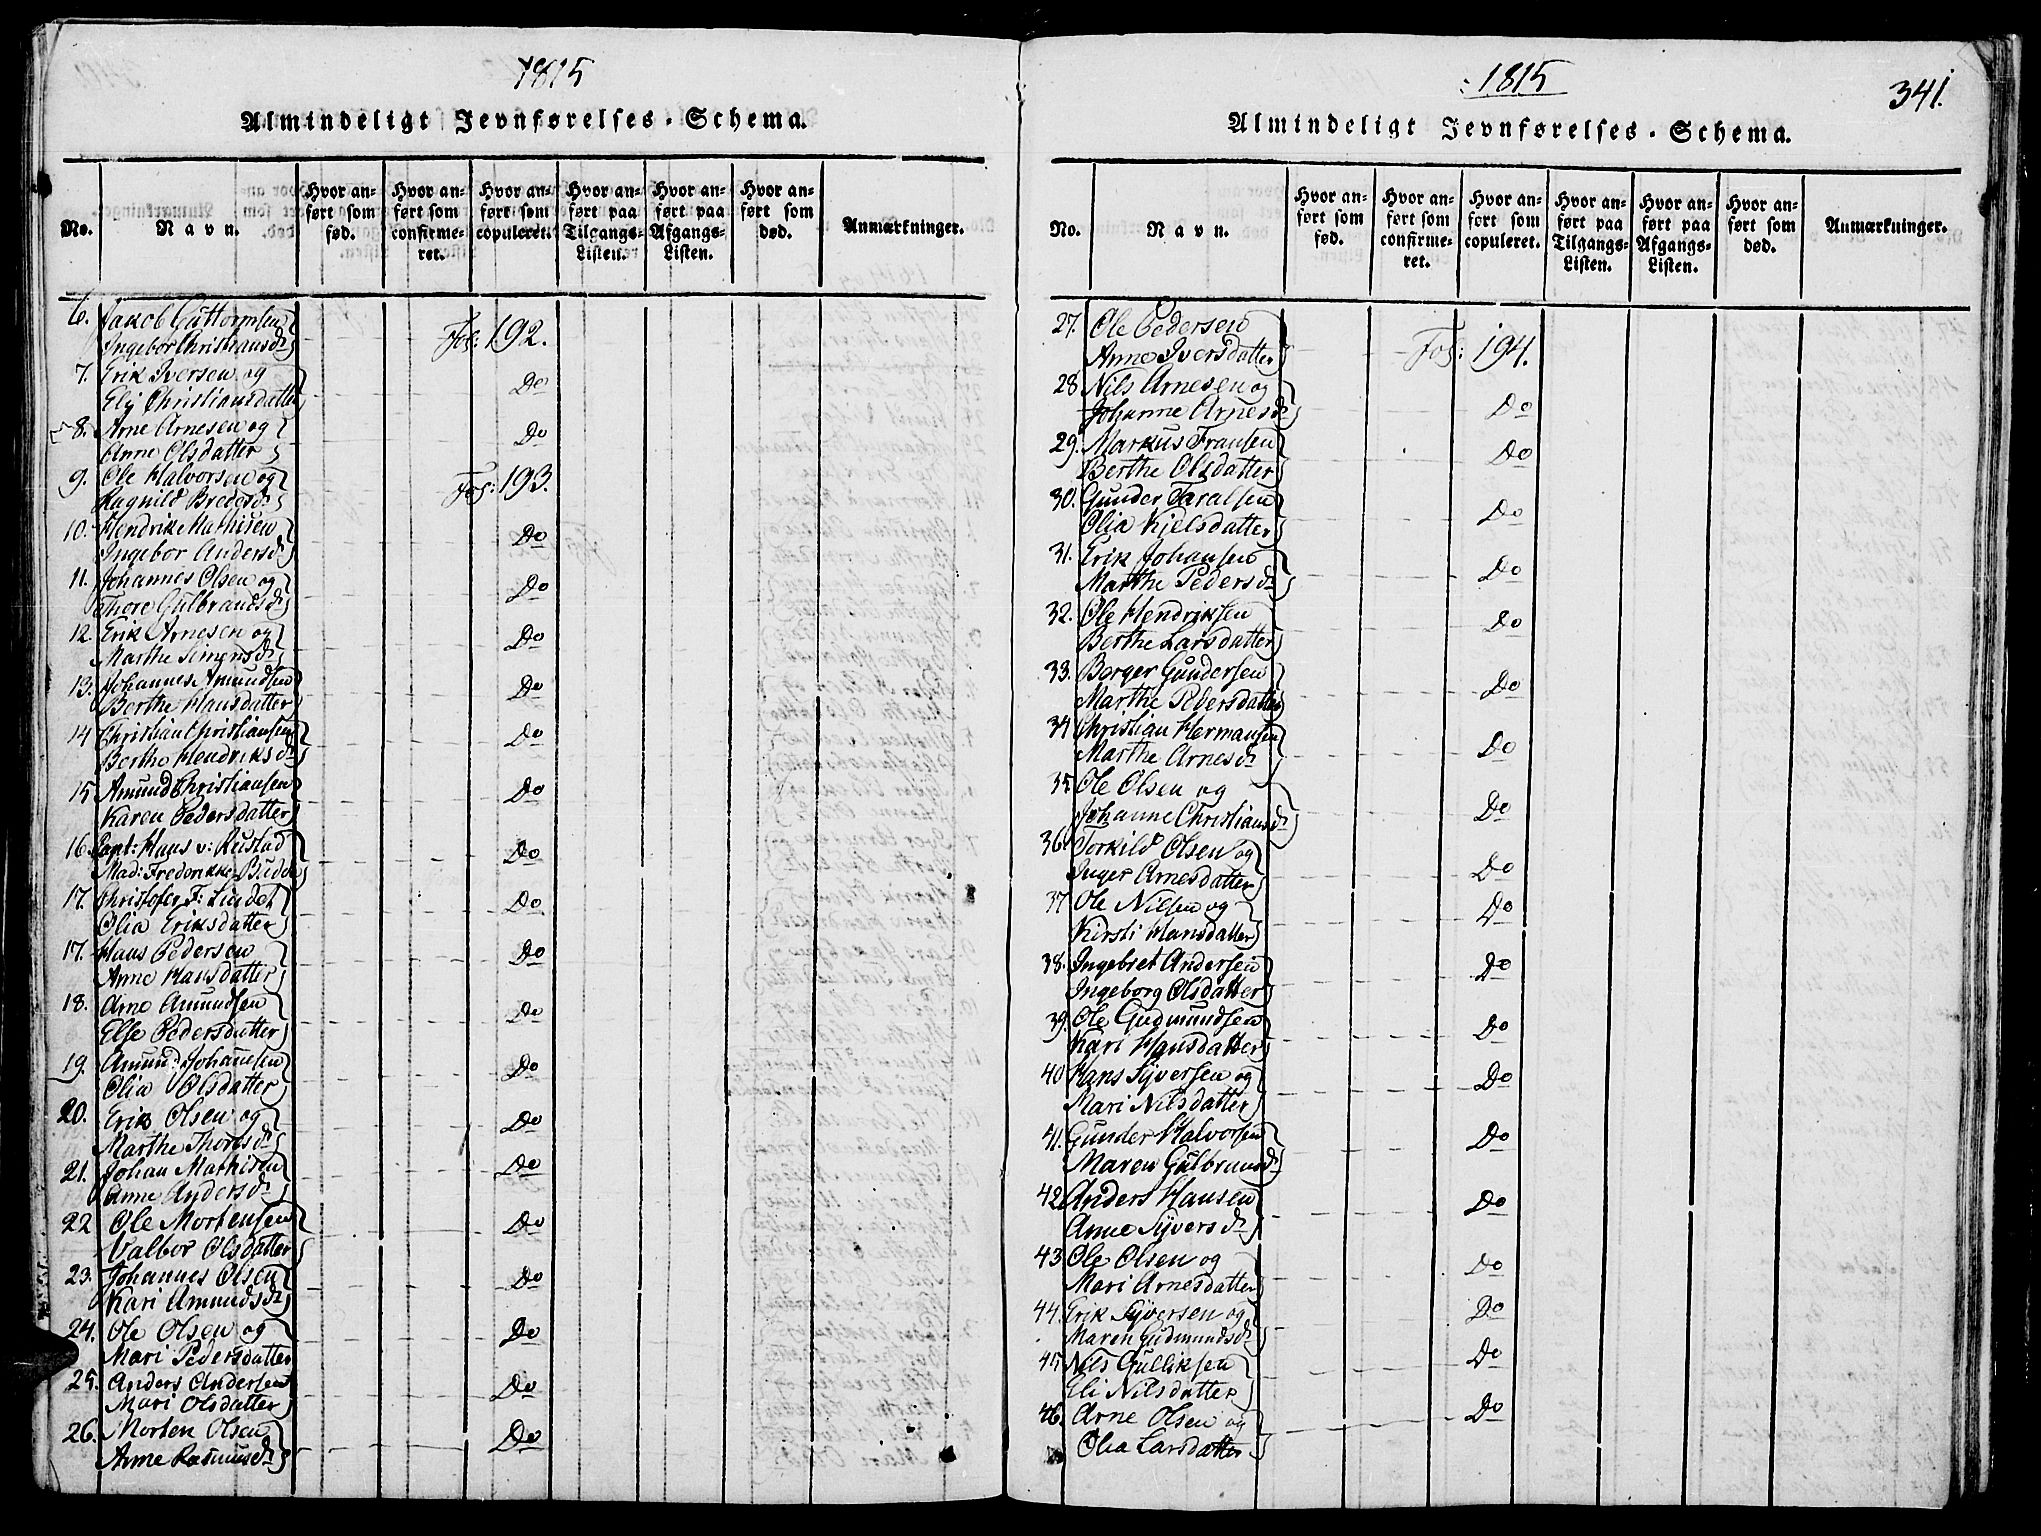 1815
Almindeligt Jevnførelses-Schema.
No.
Navn.
Hvor anført som fød.
Hvor anført som confirmeret.
Hvor anført som copuleret.
Hvor anført paa Tilgangs-Listen.
Hvor anført paa Afgangs-Listen.
Hvor anført som død.
Anmærkninger.
6. Jakob Guttormsen
Ingebor Christiansdr Fol: 192.
7. Erik Iversen og
Elij Christiansdatter Do
8. Arne Arnesen og
Anne Olsdatter Do
9. Ole Halvorsen og
Ragnild Bredesdr Fol: 193.
10. Hendrik Mathisen
Ingebor Andersdr Do
11. Johannes Olsen og
Thore Gulbrandsdr Do
12 Erik Arnesen og
Marthe Simensdr Do
13. Johannes Amundsen
Berthe Hansdatter Do
14 Christian Christiansen
Berthe Hendriksdr Do
15 Amund Christiansen
Karen Pedersdatter Do
16 Capt: Hans v: Rustad
Mad: Fredrikke Budde Do
17. Christofer F: Lindet
Olia Eriksdatter Do
17. Hans Pedersen
Anne Hansdatter Do
18. Arne Amundsen
Else Pedersdatter Do
19. Amund Johansen
Olia Olsdatter Do
20. Erik Olsen og
Marthe Thoresdr Do
21. Johan Mathisen
Anne Andersdr Do
22 Ole Mortensen
Valbor Olsdatter Do
23. Johannes Olsen
Kari Amundsdr Do
24. Ole Olsen og
Mari Pedersdatter Do
25. Anders Andersen
Mari Olsdatter Do
26. Morten Olsen
Anne Rasmusdr Do
1815
341.
Almindeligt Jevnførelses-Schema.
No.
Navn.
Hvor anført som fød.
Hvor anført som confirmeret.
Hvor anført som copuleret.
Hvor anført paa Tilgangs-Listen.
Hvor anført paa Afgangs-Listen.
Hvor anført som død.
Anmærkninger.
27. Ole Pedersen
Anne Iversdatter Fol: 194.
28 Nils Arnesen og
Johanne Arnesdr Do
29. Markus Fransen
Berthe Olsdatter Do
30. Gunder Taralsen
Olia Kjelsdatter Do
31. Erik Johansen
Marthe Pedersdr Do
32. Ole Hendriksen
Berthe Larsdatter Do
33. Borger Gundersen
Marthe Pedersdatter Do
34 Christian Hermansen
Marthe Arnesdr Do
35 Ole Olsen og
Johanne Christiansdr Do
36. Torkild Olsen og
Inger Arnesdatter Do
37 Ole Nilsen og
Kirsti Hansdatter Do
38. Ingebret Andersen
Ingeborg Olsdatter Do
39. Ole Gudmundsen
Kari Hansdatter Do
40 Hans Syversen og
Mari Nilsdatter Do
41. Gunder Halvorsen
Maren Gulbransdr Do
42 Anders Hansen
Anne Syversdr Do
43 Ole Olsen og
Mari Arnesdatter Do
44. Erik Syversen og
Maren Gudmundsdr Do
45 Nils Gulliksen
Eli Nilsdatter Do
46. Arne Olsen og
Olia Larsdatter Do